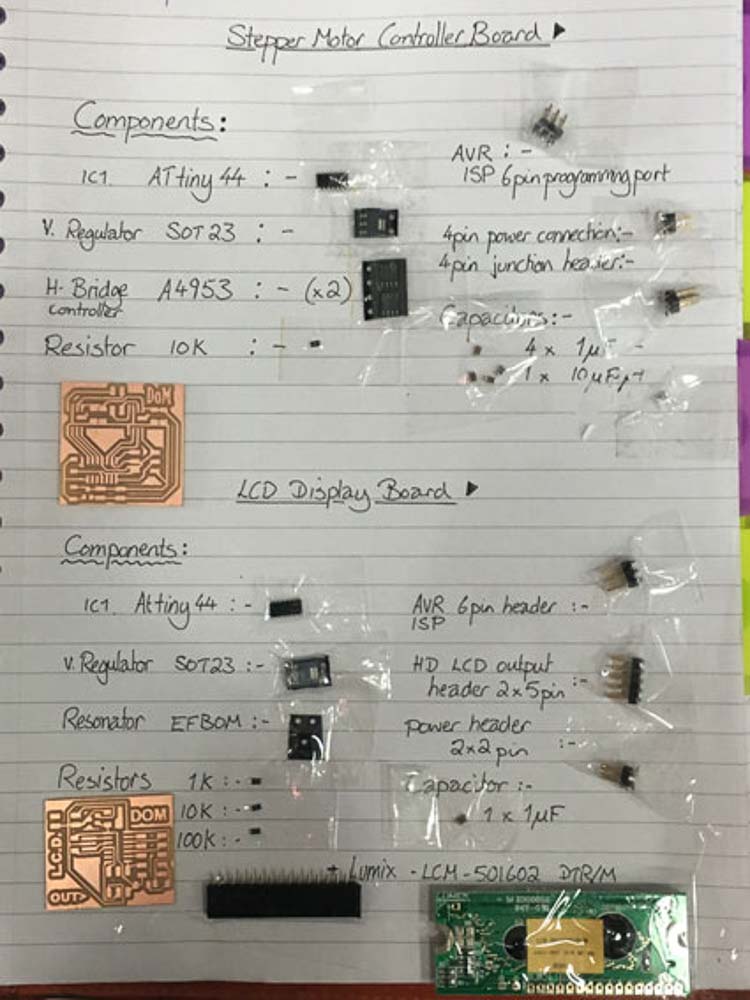 Stepper Motor Controller Board ▶
Components:
IC1. ATtiny 44 : -
V. Regulator SOT23 : -
H-Bridge A4953 : - (x2)
controller
Resistor 10K : -
AVR : -
ISP 6pin programming port
4pin power connection:-
4pin junction header:-
Capacitors:-
4 x 1µF -
1 x 10µF
DoM
LCD Display Board ▶
Components:
IC1. Attiny 44 : -
V. Regulator SOT23 :-
Resonator EFBOM :-
Resistors 1K : -
10K : -
100K : -
AVR 6pin header :-
ISP
HD LCD output
header 2x5pin :-
power header
2x2 pin :-
Capacitor :-
1 x 1µF
LCD
DOM
OUT
+ Lumix - LCM-S01602 DTR/M